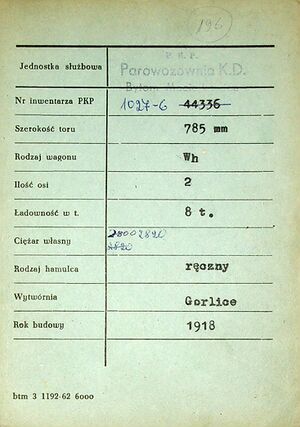 196
P. K. P.
Jednostka służbowa Parowozownia K.D.
Bytom
Nr inwentarza PKP 1027-6 44336
Szerokość toru 785 mm
Rodzaj wagonu Wh
Ilość osi 2
Ładowność w t. 8 t.
Ciężar własny 2820
2820
Rodzaj hamulca ręczny
Wytwórnia Gorlice
Rok budowy 1918
btm 3 1192-62 6000